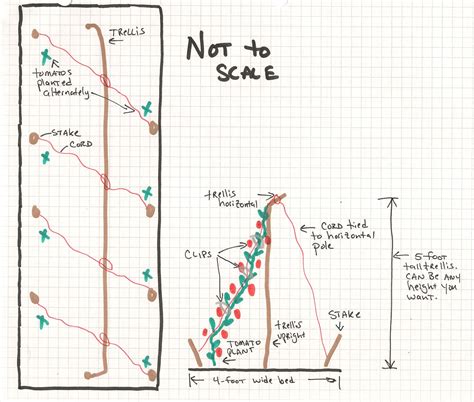 TRELLIS
NOT TO
SCALE
TOMATOS
PLANTED
alternately
STAKE
CORD
trellis
horizontal
CLIPS
CORD TIED
to horizontal
pole
5-foot
tall trellis.
CAN BE ANY
height you
WANT.
STAKE
TOMATO
PLANT
trellis
upright
4-foot wide bed